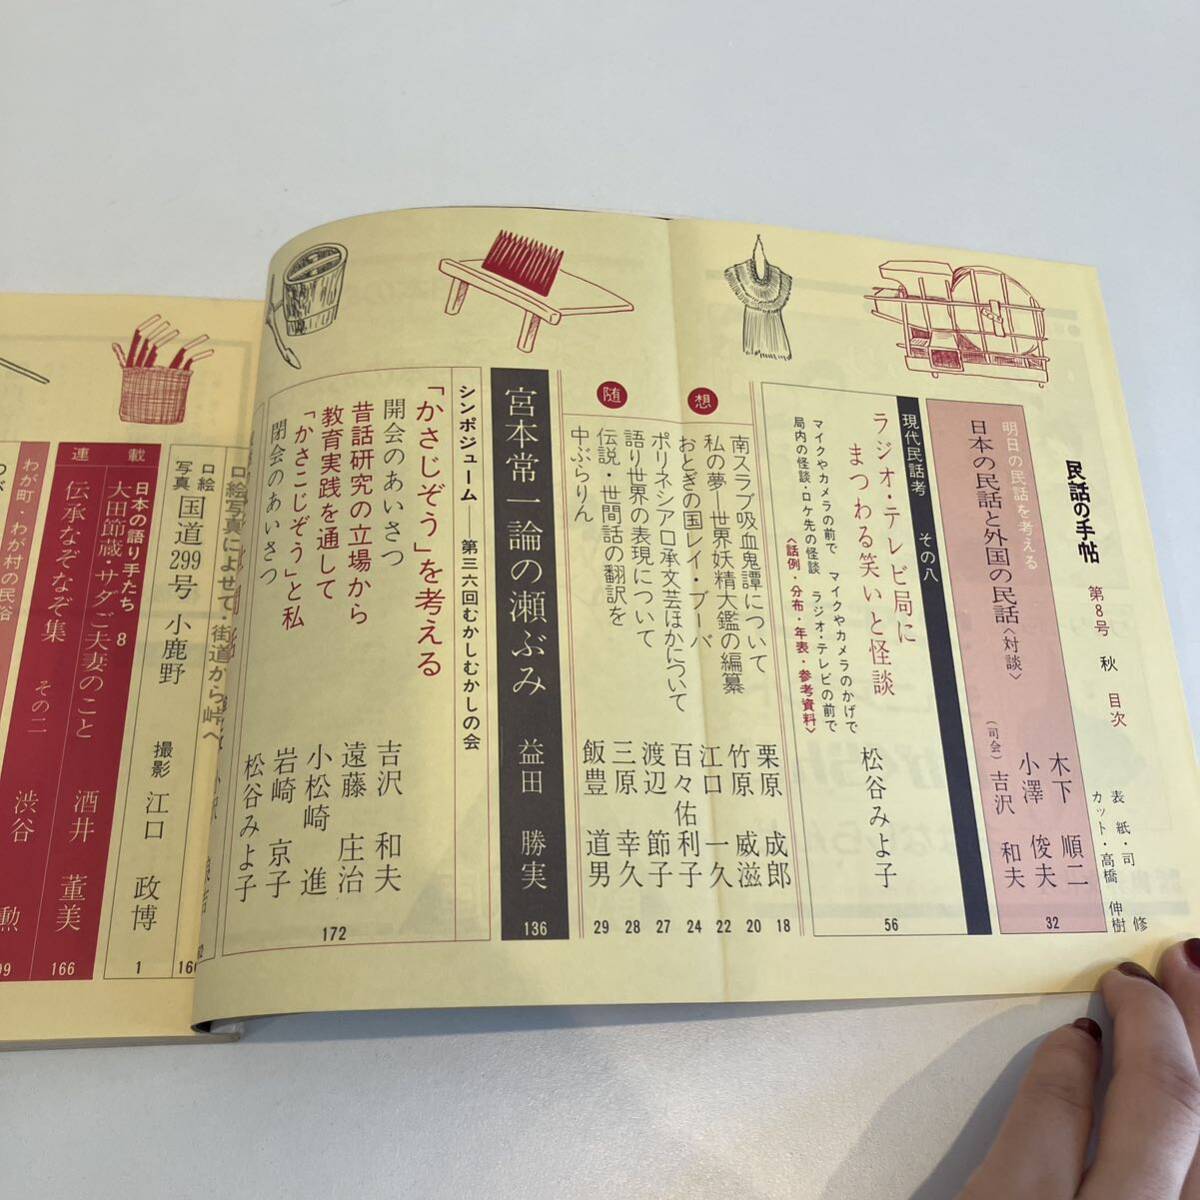 民話の手帖 第8号 秋 目次
表紙・司 修
カット・高橋 伸樹
明日の民話を考える
日本の民話と外国の民話〈対談〉
木下 順二
小澤 俊夫
(司会) 吉沢 和夫
32
現代民話考 その八
ラジオ・テレビ局に
まつわる笑いと怪談
松谷みよ子
マイクやカメラの前で マイクやカメラのかげで
局内の怪談・ロケ先の怪談 ラジオ・テレビの前で
〈話例・分布・年表・参考資料〉
56
随想
南スラブ吸血鬼譚について 栗原 成郎 18
私の夢―世界妖精大鑑の編纂 竹原 威滋 20
おとぎの国レイ・ブーバ 江口 一久 22
ポリネシア口承文芸ほかについて 百々佑利子 24
語り世界の表現について 渡辺 節子 27
伝説・世間話の翻訳を 三原 幸久 28
中ぶらりん 飯豊 道男 29
宮本常一論の瀬ぶみ 益田 勝実 136
シンポジューム――第三六回むかしむかしの会
「かさじぞう」を考える
開会のあいさつ 吉沢 和夫
昔話研究の立場から 遠藤 庄治
教育実践を通して 小松崎 進
「かさこじぞう」と私 岩崎 京子
閉会のあいさつ 松谷みよ子
172
口絵写真によせて・街道から峠へ
口絵写真 国道299号 小鹿野 撮影 江口 政博 1
連載
日本の語り手たち 8
大田節蔵・サダご夫妻のこと 酒井 董美 166
伝承なぞなぞ集 その二
わが町・わが村の民俗
渋谷 勲